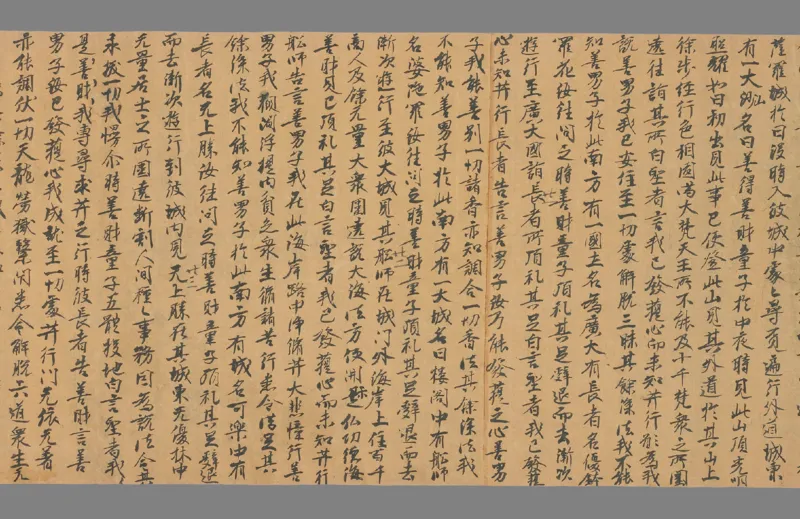 薩羅城於日没時入彼城中處々尋覓遍行外道城東
有一大山名曰善得善財童子於中夜時見此山頂光明
照耀如日初出見此事已便登此山見其外道於其山上
徐步經行色相圓滿大梵天王所不能及十千梵衆之所圍
遶往詣其所白聖者言我已發菩提心而未知𦬇行願為我
説善男子我已安住至一切處解脱三昧其餘深法我不能
知善男子於此南方有一國土名為廣大有長者名優鉢
羅花汝往問之時善財童子頂礼其足辭退而去漸次
廿一
遊行至廣大國詣長者所頂礼其足白言聖者我已發菩提
心未知𦬇行長者告言善男子汝乃能發菩提之心善男
子我能善别一切諸香亦知調合一切香法其餘深法我
不能知善男子於此南方有一大城名曰樓閣中有舩師
名婆施羅汝往問之時善財童子頂礼其足辭退而去
廿二
漸次遊行至彼大城見其舩師在城门外海岸上住百千
商人及餘无量大衆圍遶説大海法方便開仏功德海
善財見已頂礼其足白言聖者我已發菩提心而未知𦬇行
舩師告言善男子我在此海岸路中淨修𦬇大悲幢行善
男子我觀閻浮提内貧乏衆生脩諸苦行悉令満足其
餘深法我不能知善男子於此南方有城名可樂中有
長者名无上勝汝往問之時善財童子頂礼其足辭退
廿三
而去漸次遊行到彼城内見无上勝在其城東无憂林中
无量居士之所圍遶斷利人間種々事務因為説法令其
永拔一切我慢尒時善財童子五體投地白言聖者我
是善財我專尋求𦬇之行時彼長者告善財言善
男子汝已發菩提心我成就至一切處𦬇行门无依无着
亦能調伏一切天龍鬪悉令解脱六道衆生无